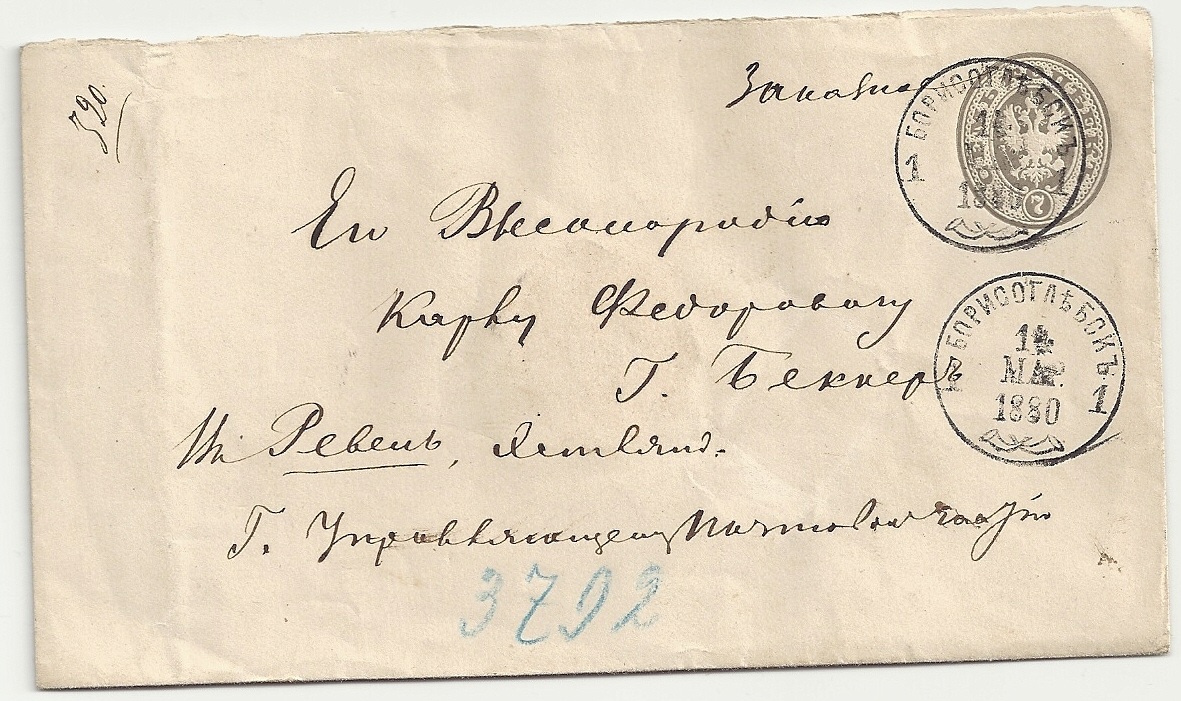 320.
Заказное
БОРИСОГЛѢБСКЪ
1 1
1880
7
Его Высокородію
Карлу Федоровичу
Г. Беккеръ
БОРИСОГЛѢБСКЪ
14
МАР.
1880
1 1
Въ Ревель, Эстлянд.
Г. Управляющему Почтовою частію
3792